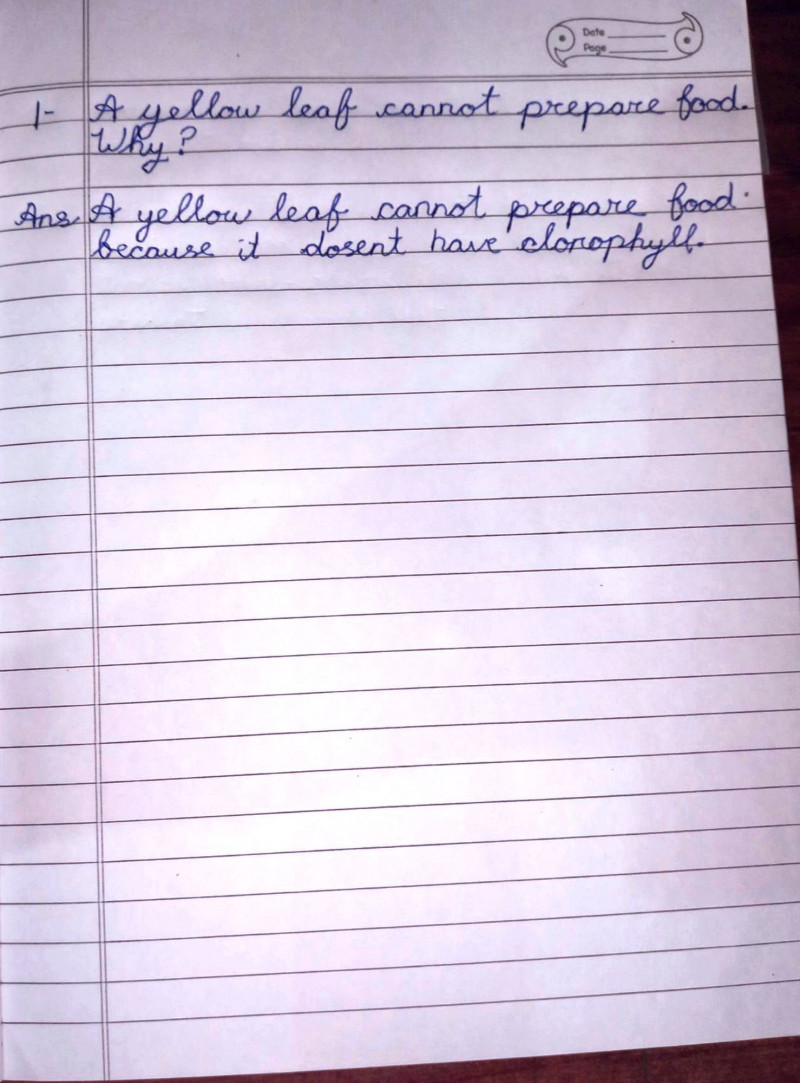 Date
Page
1- A yellow leaf cannot prepare food.
Why?
Ans. A yellow leaf cannot prepare food.
because it dosent have clorophyll.